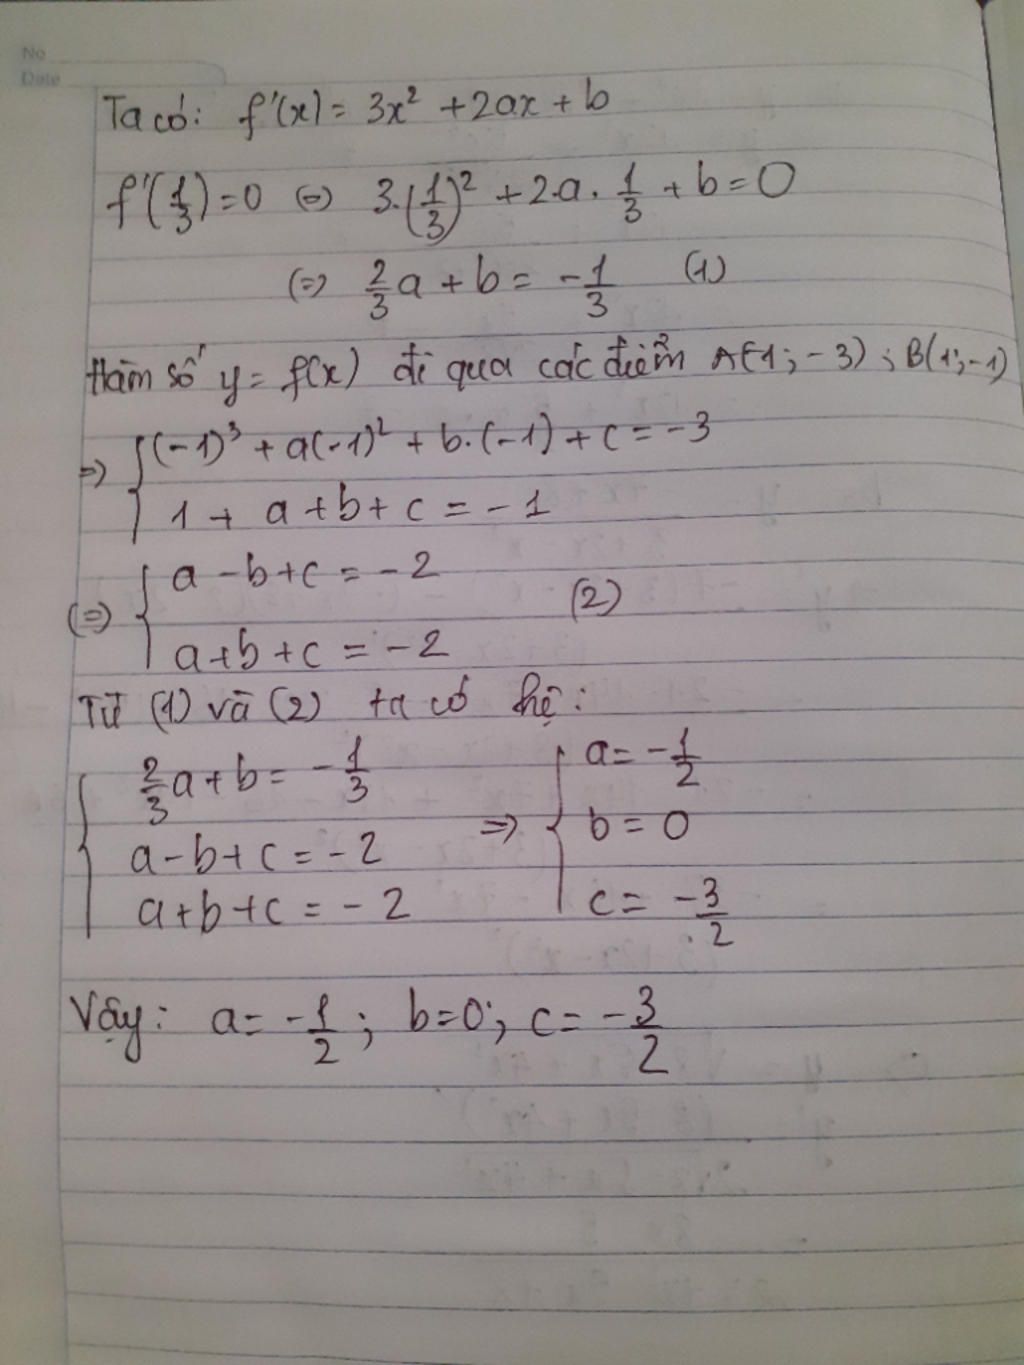 No
Date
Ta có: f'(x) = 3x² + 2ax + b
f'(1/3) = 0 (=) 3.(1/3)² + 2.a.1/3 + b = 0
(=) 2/3 a + b = -1/3 (1)
Hàm số y = f(x) đi qua các điểm A(-1; -3); B(1; -1)
=> { (-1)³ + a(-1)² + b.(-1) + c = -3
1 + a + b + c = -1
(=) { a - b + c = -2
(2)
a + b + c = -2
Từ (1) và (2) ta có hệ:
{ 2/3 a + b = -1/3 => { a = -1/2
a - b + c = -2 b = 0
a + b + c = -2 c = -3/2
Vậy: a = -1/2; b = 0; c = -3/2